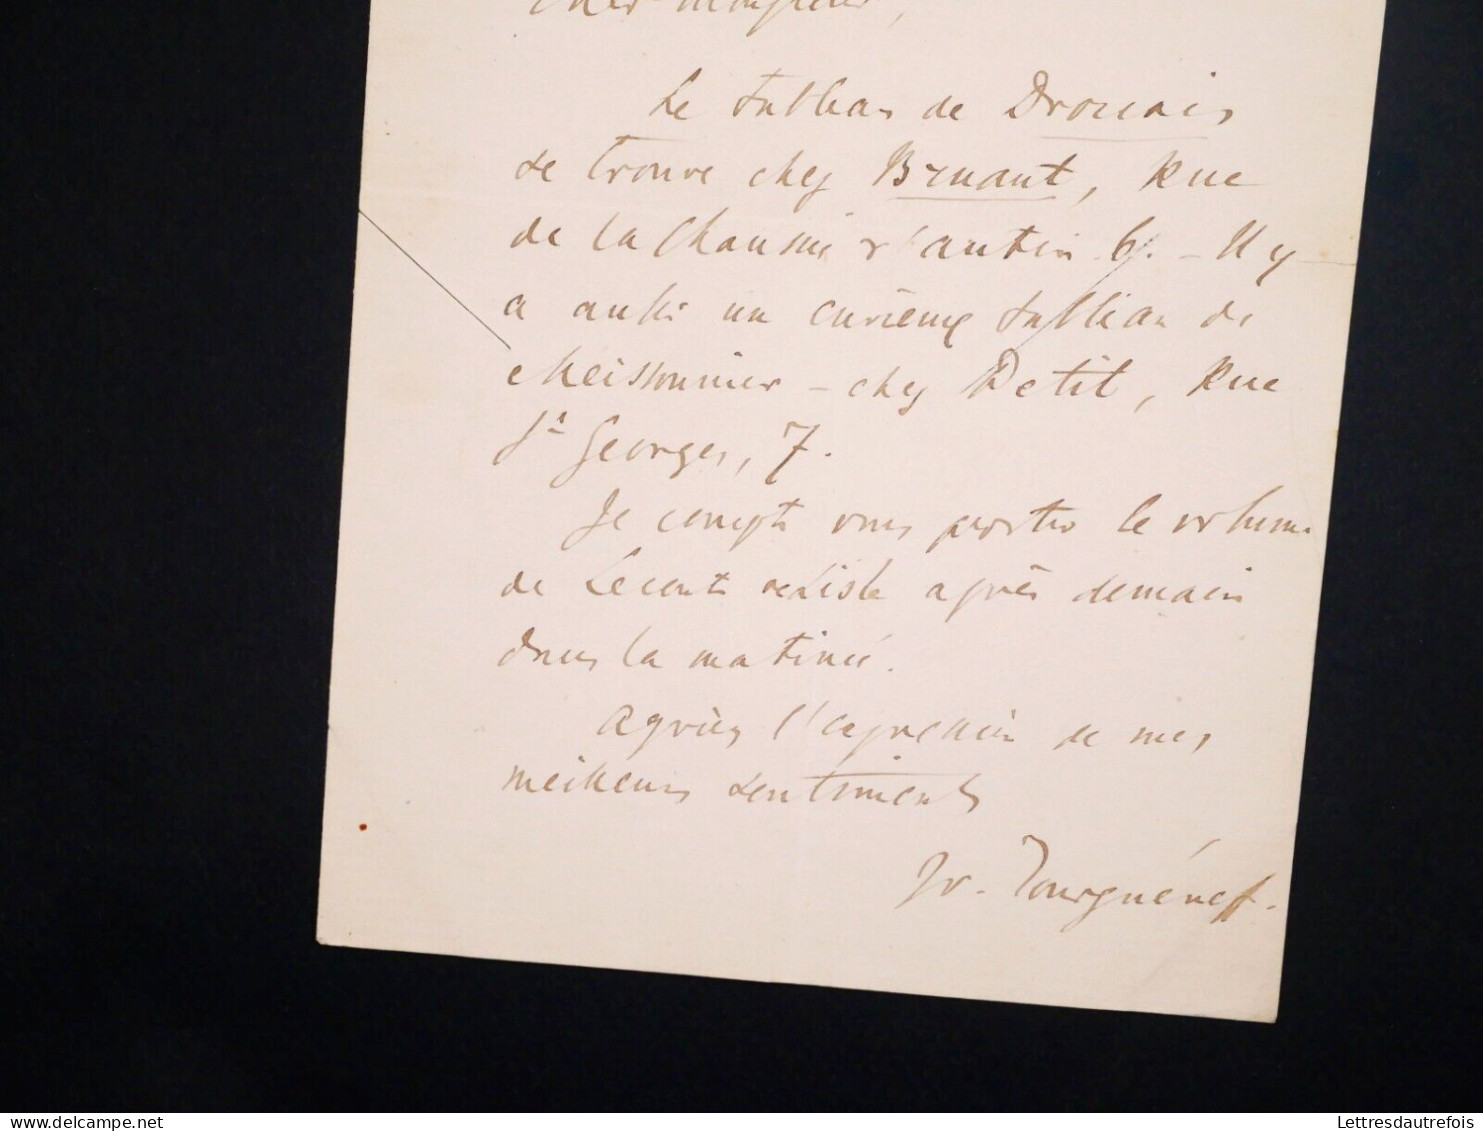 Cher Monsieur,
Le tableau de Drouais
se trouve chez Bruant, Rue
de la Chaussée d'Antin 6. – Il y
a aussi un curieux tableau de
Meissonnier – chez Petit, Rue
St Georges, 7.
Je compte vous porter le volume
de Leconte de Lisle après demain
dans la matinée.
Agréez l'expression de mes
meilleurs sentiments
Iv. Tourguéneff.
© delcampe.net
Lettresdautrefois